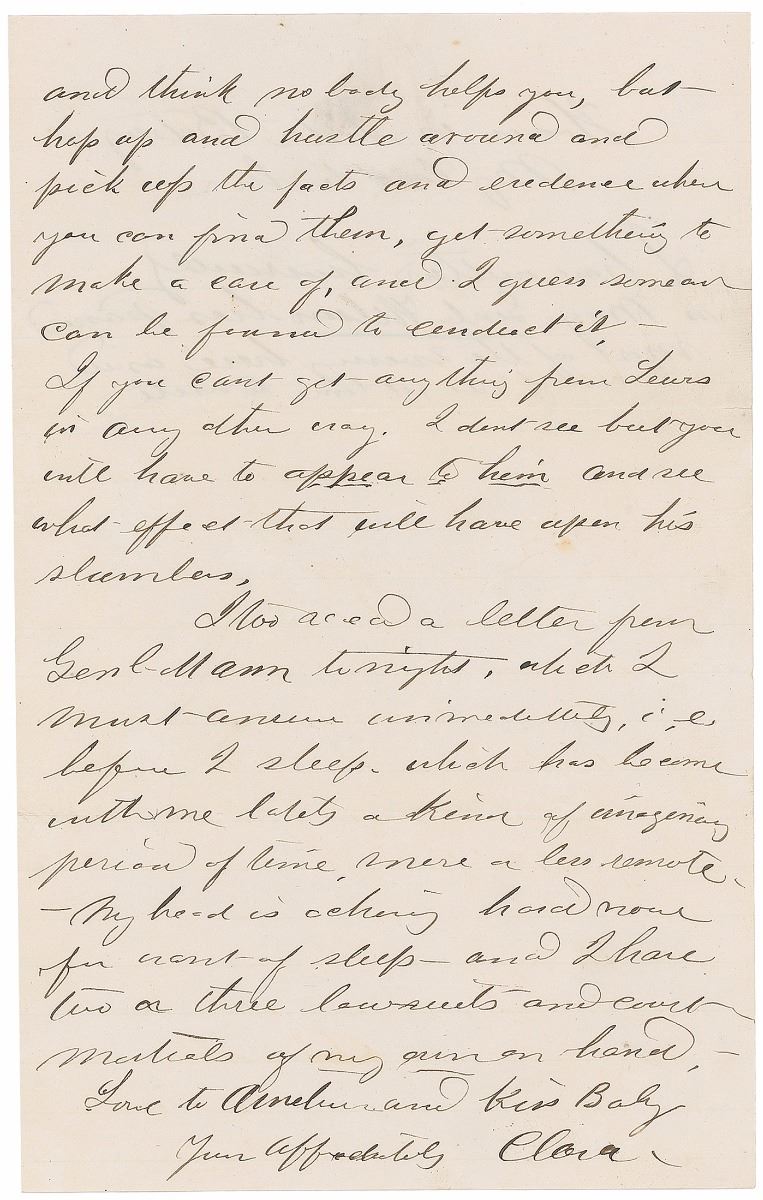 and think nobody helps you, but
hop up and hustle around and
pick up the facts and evedence when
you can find them, get something to
make a case of, and I guess someone
can be found to conduct it, —
If you cant get anything from Lewis
in any other way. I dont see but you
will have to appear to him and see
what effect that will have upon his
slumbers.
I too a letter from
Genl Mann tonight, which I
must answer immediately, i.e.
before I sleep. which has become
with me lately a kind of imaginary
period of time, more or less remote.
— My head is acheing hard now
for want of sleep — and I have
two or three lawsuits and court
martials of my own on hand, —
Love to and Kiss Baby
Your Affectately Clara —